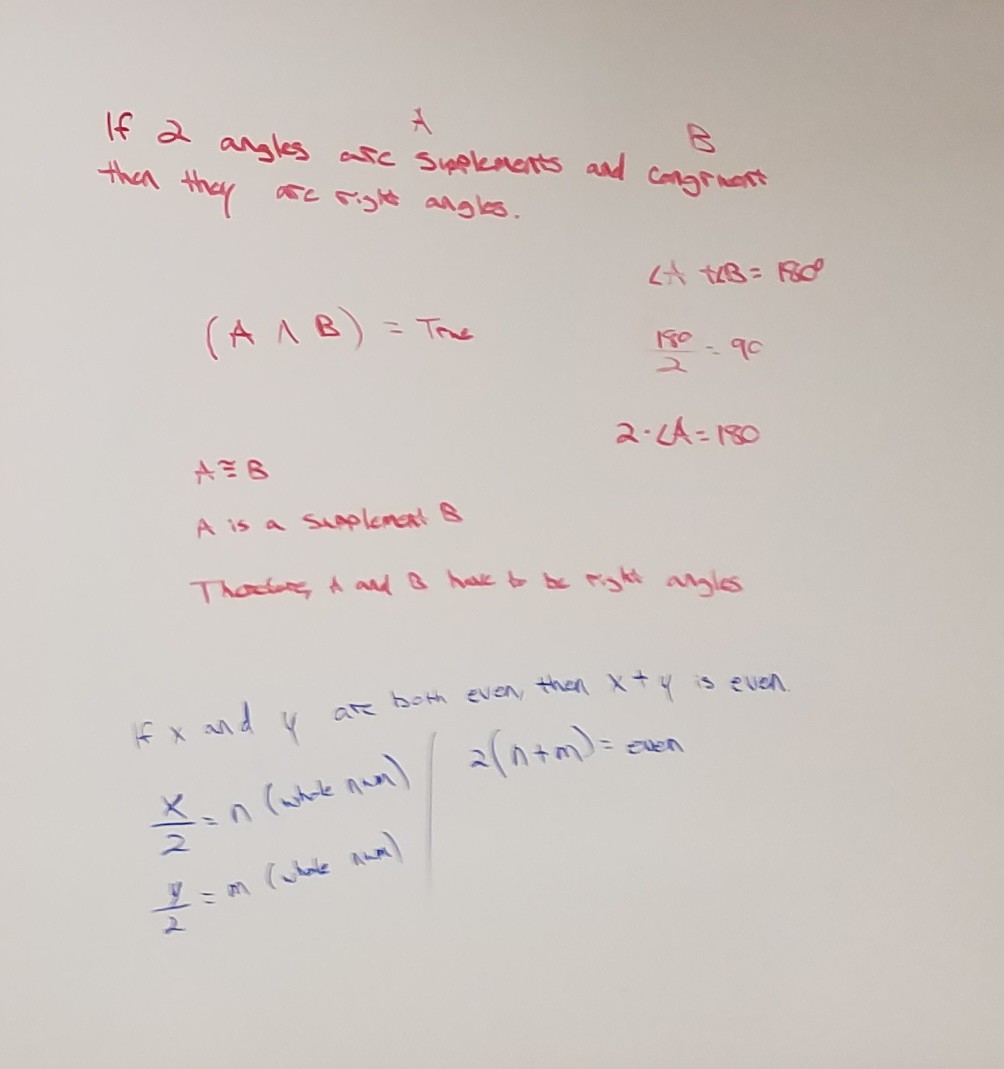 A B
If 2 angles are supplements and congruent
then they are right angles.
∠A +∠B = 180°
(A ∧ B) = True
180/2 = 90
2·∠A = 180
A ≅ B
A is a supplement B
Therefore, A and B have to be right angles
If x and y are both even, then x + y is even.
x/2 = n (whole num) | 2(n+m) = even
y/2 = m (whole num)